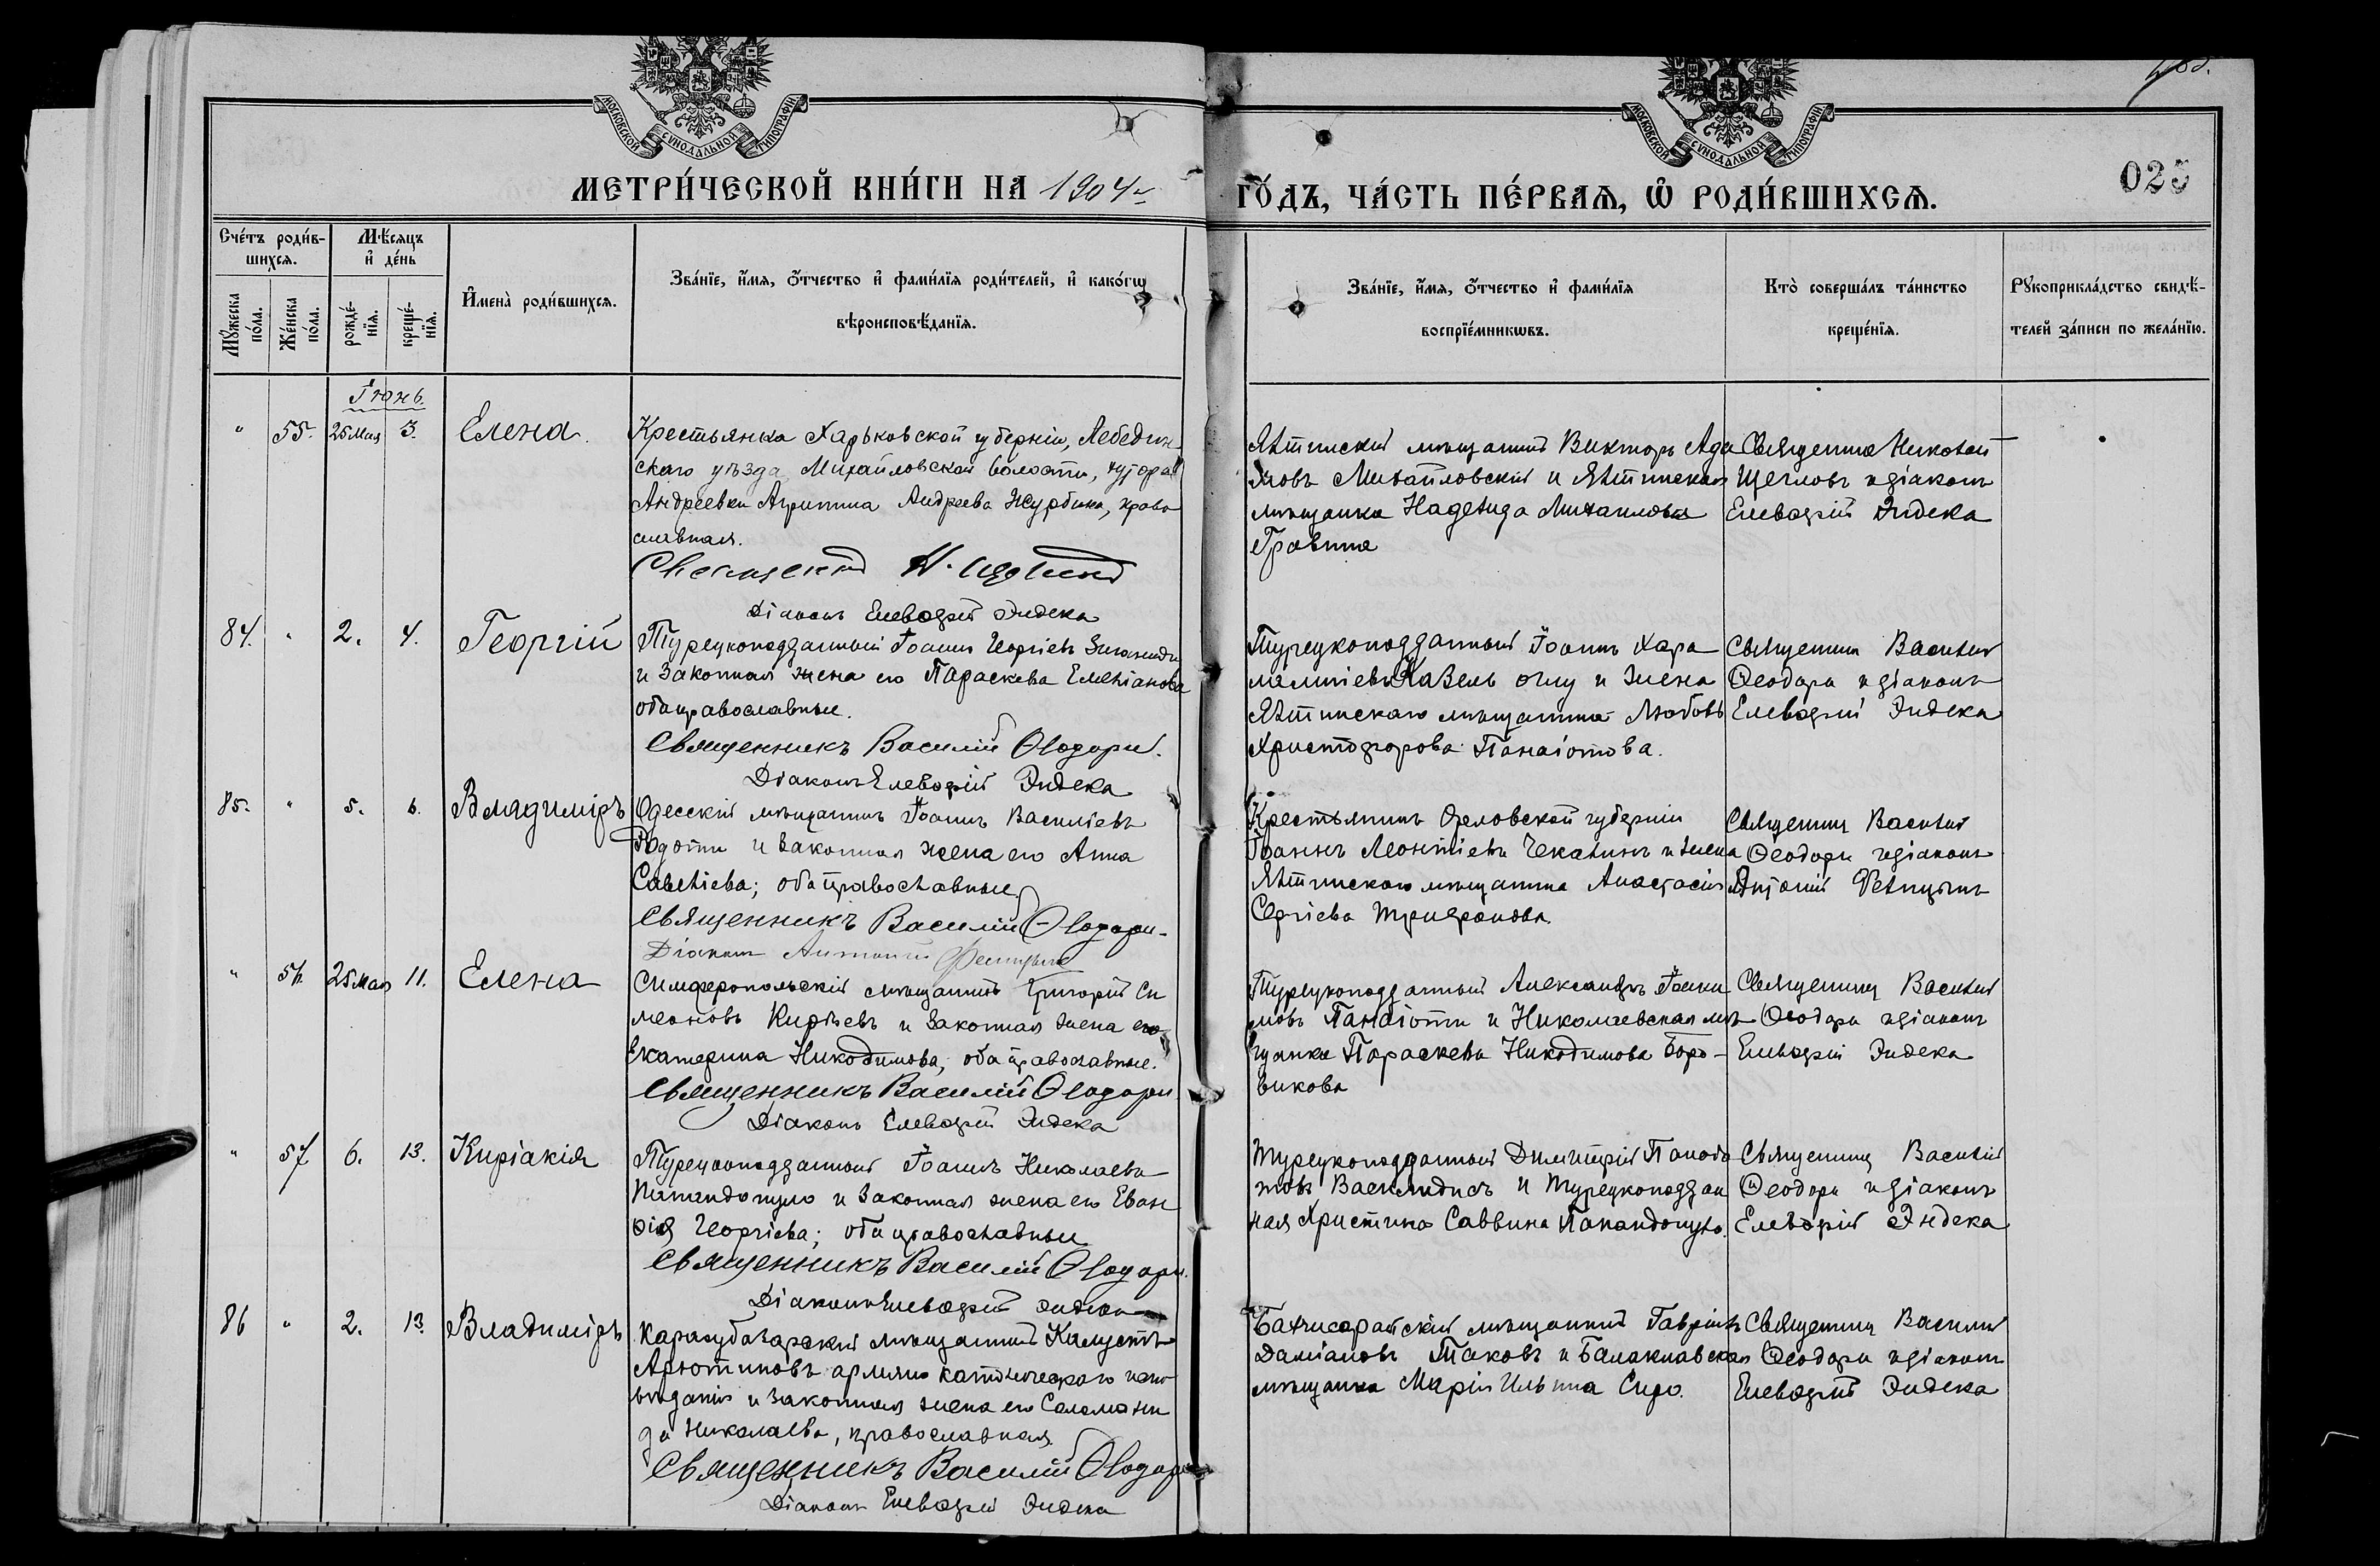 МОСКОВСКОЙ СѴНОДАЛЬНОЙ ТИПОГРАФІИ
МОСКОВСКОЙ СѴНОДАЛЬНОЙ ТИПОГРАФІИ
025
МЕТРИ́ЧЕСКОЙ КНИ́ГИ НА 1904 ГО́ДЪ, ЧА́СТЬ ПЕ́РВАЯ, Ѡ РОДИ́ВШИХСЯ.
Сче́тъ роди́в-
шихся.
Мꙋ́жеска
по́ла.
Же́нска
по́ла.
Мѣ́сяцъ
и҆ де́нь
рожде́-
нїя.
креще́-
нїя.
И҆мена̀ роди́вшихся.
Зва́нїе, и҆́мя, ѻ҆́тчество и҆ фами́лїя роди́телей, и҆ како́гѡ
вѣроисповѣ́данїя.
Зва́нїе, и҆́мя, ѻ҆́тчество и҆ фами́лїя
воспрїе́мникѡвъ.
Кто̀ соверша́лъ та́инство
креще́нїя.
Рꙋкоприкла́дство свидѣ́-
телей за́писи по жела́нїю.
Іюнь.
" 55. 25 Мая 3. Елена.
Крестьянка Харьковской губерніи, Лебедин-
скаго уѣзда, Михайловской волости, хутора
Андреевки Агрипина Андреева Журбина, право
славная.
Священникъ Н. Щегловъ
Діаконъ Елевѳерій Эндека
Ялтинскій мѣщанинъ Викторъ Ада
мовъ Михайловскій и Ялтинская
мѣщанка Надежда Михайлова
Гравина
Священникъ Николай
Щегловъ и діаконъ
Елевѳерій Эндека
84. " 2. 4. Георгій
Турецкоподданный Іоаннъ Георгіевъ
и законная жена его Параскева Емеліанова
оба православные.
Священникъ Василій Ѳеодори.
Діаконъ Елевѳерій Эндека
Турецкоподданный Іоаннъ Хара
лампіевъ оглу и жена
Ялтинскаго мѣщанина Любовь
Христофорова Панаіотова.
Священникъ Василій
Ѳеодори и діаконъ
Елевѳерій Эндека
85. " 5. 6. Владиміръ
Одесскій мѣщанинъ Іоаннъ Василіевъ
и законная жена его Анна
Савеліева; оба православные
Священникъ Василій Ѳеодори
Діаконъ Антоній
Крестьянинъ Орловской губерніи
Іоаннъ Леонтіевъ Чекалинъ и жена
Ялтинскаго мѣщанина Анастасія
Сергіева Трифонова.
Священникъ Василій
Ѳеодори и діаконъ
Антоній
" 56. 25 Мая 11. Елена
Симферопольскій мѣщанинъ Григорій Си
меоновъ Кирѣевъ и законная жена его
Екатерина Никодимова, оба православные.
Священникъ Василій Ѳеодори
Діаконъ Елевѳерій Эндека
Турецкоподданный Александръ Іоаки
мовъ Панаіоти и Николаевская мѣ-
щанка Параскева Никодимова Боро-
викова
Священникъ Василій
Ѳеодори и діаконъ
Елевѳерій Эндека
" 57 6. 13. Киріакія
Турецкоподданный Іоаннъ Николаевъ
Папандопуло и законная жена его Еван
ѳія Георгіева; оба православные
Священникъ Василій Ѳеодори.
Діаконъ Елевѳерій Эндека
Турецкоподданный Димитрій
Василидисъ и Турецкоподдан
ная Христина Саввина Папандопуло.
Священникъ Василій
Ѳеодори и діаконъ
Елевѳерій Эндека
86 " 2. 13. Владиміръ
Карасубазарскій мѣщанинъ
Арютиновъ армяно католическаго испо
вѣданія и законная жена его Саломони
да Николаева, православная.
Священникъ Василій Ѳеодори
Діаконъ Елевѳерій Эндека
Бахчисарайскій мѣщанинъ Гавріилъ
Даміановъ Таковъ и Балаклавская
мѣщанка Марія Ильина Сидо.
Священникъ Василій
Ѳеодори и діаконъ
Елевѳерій Эндека